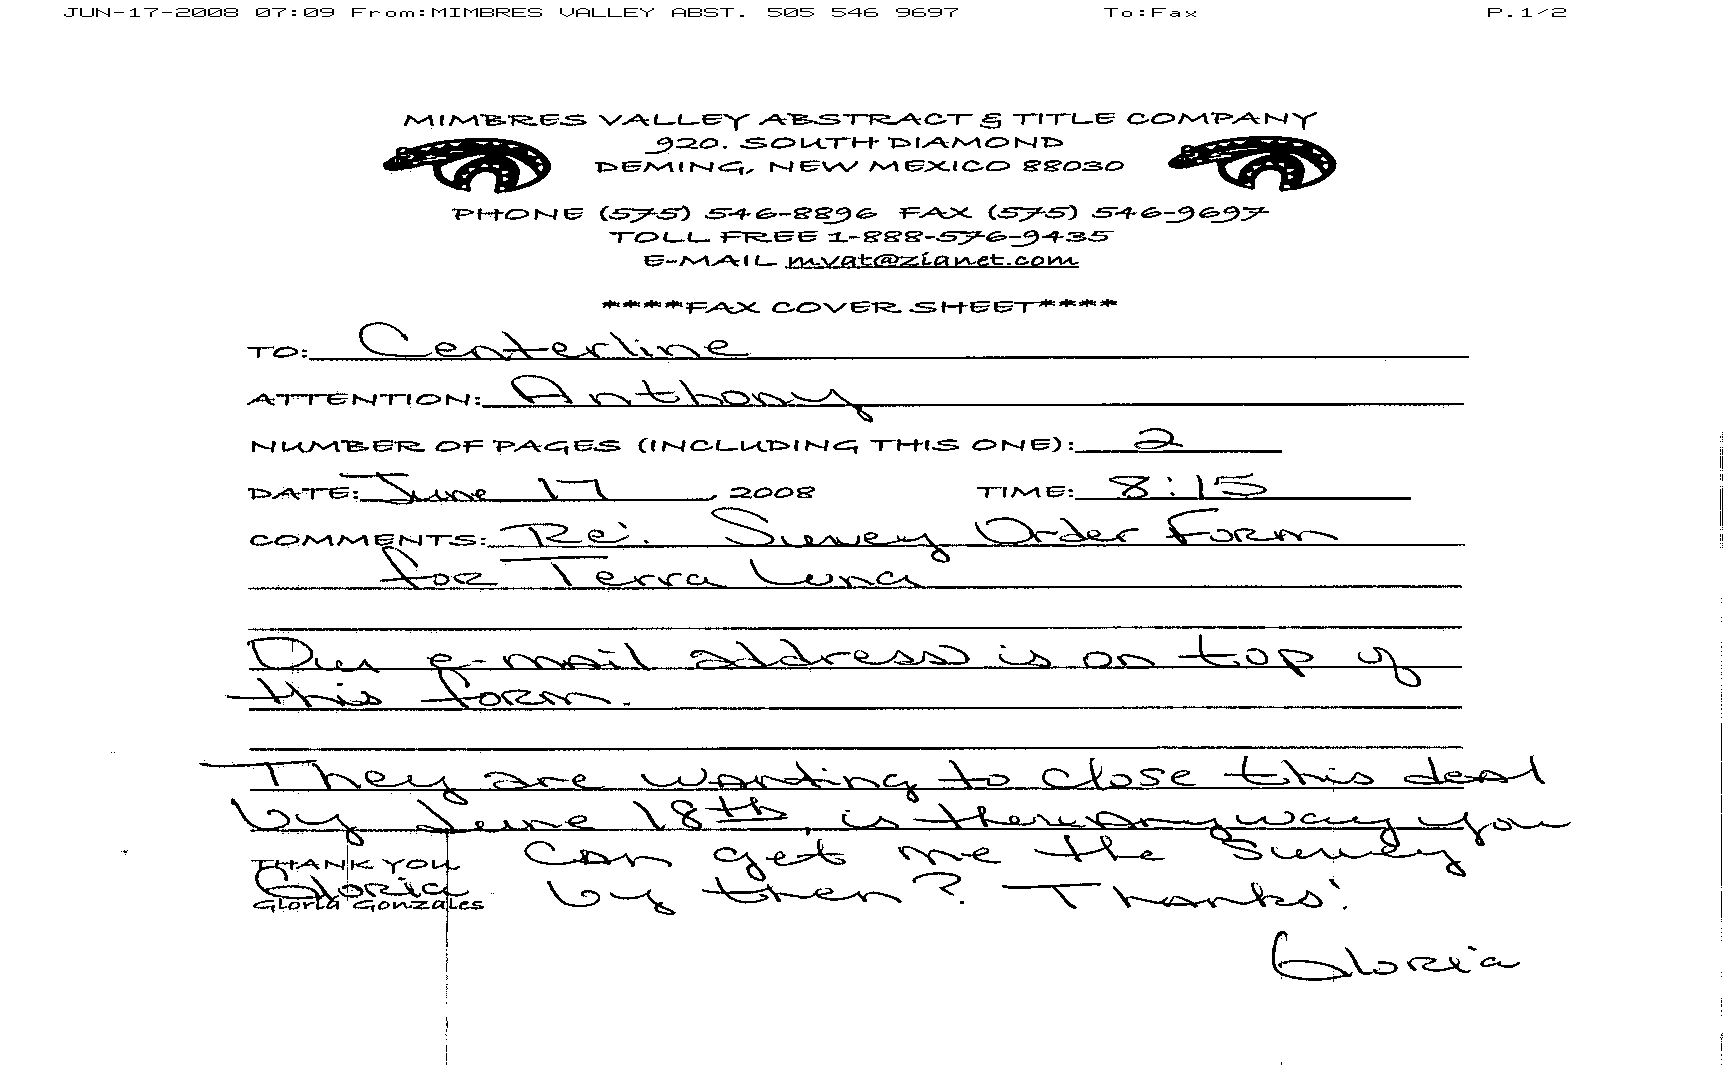 JUN-17-2008 07:09 From:MIMBRES VALLEY ABST. 505 546 9697 To:Fax P.1/2
MIMBRES VALLEY ABSTRACT & TITLE COMPANY
920. SOUTH DIAMOND
DEMING, NEW MEXICO 88030
PHONE (575) 546-8896 FAX (575) 546-9697
TOLL FREE 1-888-576-9435
E-MAIL mvat@zianet.com
****FAX COVER SHEET****
TO: Centerline
ATTENTION: Anthony
NUMBER OF PAGES (INCLUDING THIS ONE): 2
DATE: June 17, 2008 TIME: 8:15
COMMENTS: Re: Survey Order Form
for Terra Luna
Our e-mail address is on top of
this form.
They are wanting to close this deal
by June 18th, is there anyway you
THANK YOU can get me the Survey
Gloria by then? Thanks!
Gloria Gonzales
Gloria